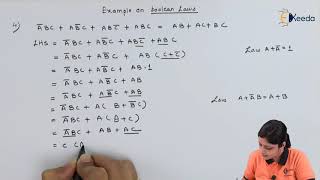 Example on boolean Laws
Ekeeda
4) A̅BC + AB̅C + ABC̅ + ABC = AB + AC + BC
LHS = A̅BC + AB̅C + ABC̅ + ABC
= A̅BC + AB̅C + AB (C + C̅)
= A̅BC + AB̅C + AB·1
= A̅BC + AB̅C + AB
= A̅BC + AB̅C + AB
= A̅BC + A( B + B̅C)
= A̅BC + A( B + C)
= A̅BC + AB + AC
= C (A̅
Law A + A̅ = 1
Law A + A̅B = A + B